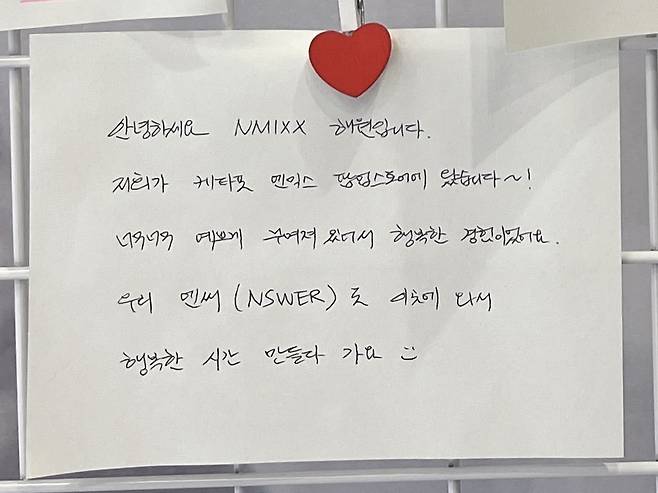 안녕하세요 NMIXX 해원입니다.
저희가 케타포 엔믹스 팝업스토어에 왔습니다~!
너무너무 예쁘게 꾸며져 있어서 행복한 경험이었어요.
우리 엔써 (NSWER) 도 이곳에 와서
행복한 시간 만들다 가요